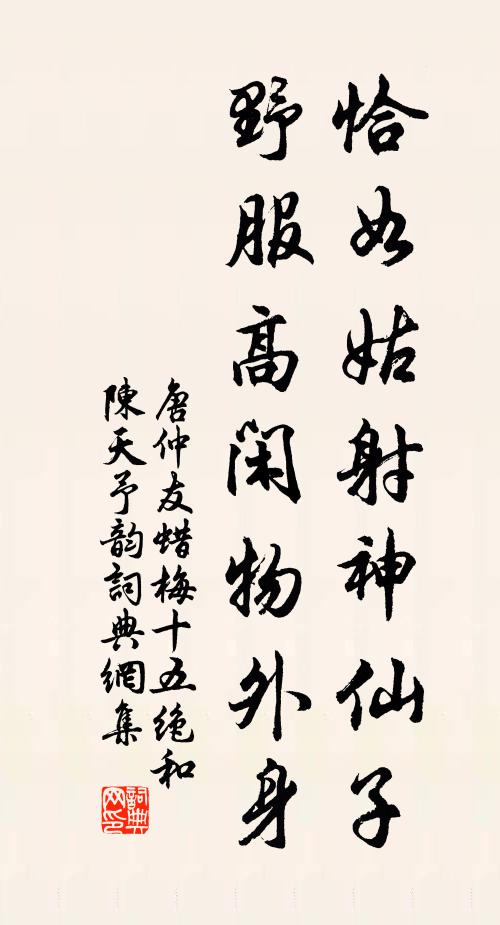 恰如姑射神仙子
野服高閑物外身
唐仲友蜡梅十五绝和
陳天予韵詞典網集
詞典网印